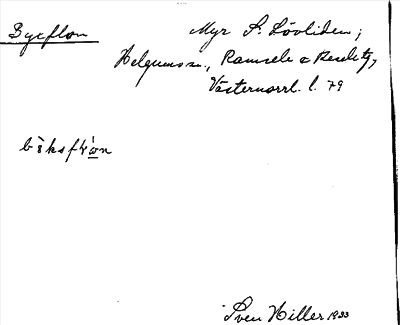 Bycflon
Myr S. Lövliden;
Helgumsn., Ramsele & Resele tg,
Västernorrl. l. 79
Sven Hiller 1933